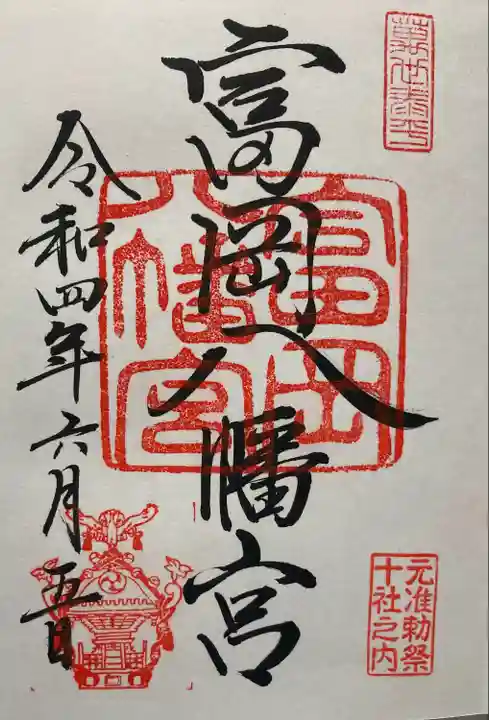 萬世泰平
富岡八幡宮
富岡
八幡宮
元准勅祭
十社之内
令和四年六月五日